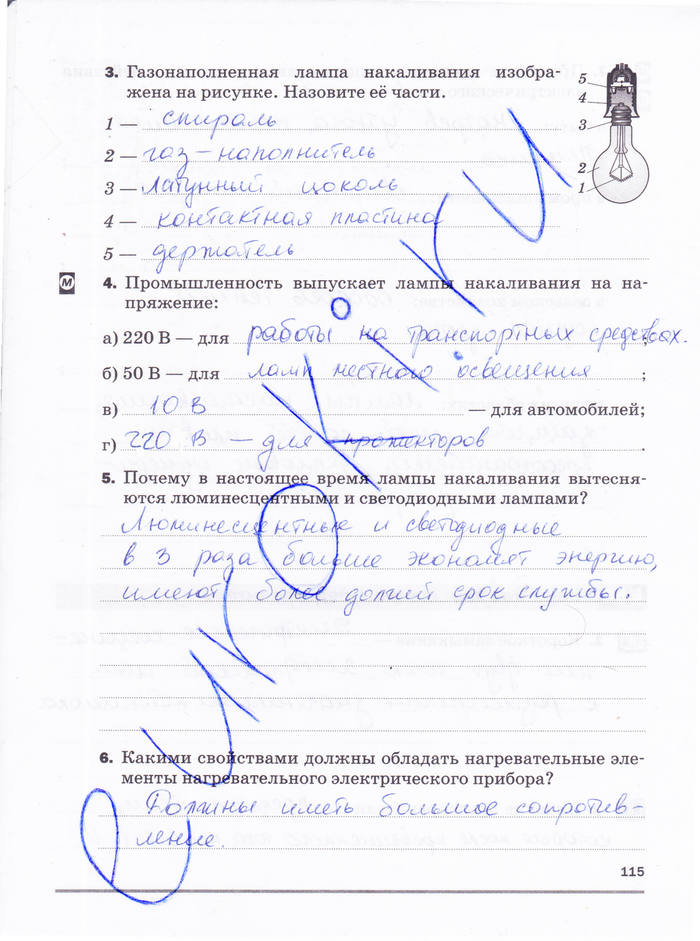 3. Газонаполненная лампа накаливания изобра-
жена на рисунке. Назовите её части.
1 — спираль
2 — газ-наполнитель
3 — латунный цоколь
4 — контактная пластина
5 — держатель
5
4
3
2
1
М
4. Промышленность выпускает лампы накаливания на на-
пряжение:
а) 220 В — для работы на транспортных средствах.;
б) 50 В — для ламп местного освещения ;
в) 10 В — для автомобилей;
г) 220 В — для прожекторов .
5. Почему в настоящее время лампы накаливания вытесня-
ются люминесцентными и светодиодными лампами?
Люминесцентные и светодиодные
в 3 раза больше экономят энергию,
имеют более долгий срок службы.
6. Какими свойствами должны обладать нагревательные эле-
менты нагревательного электрического прибора?
Должны иметь большое сопротив-
ление.
115